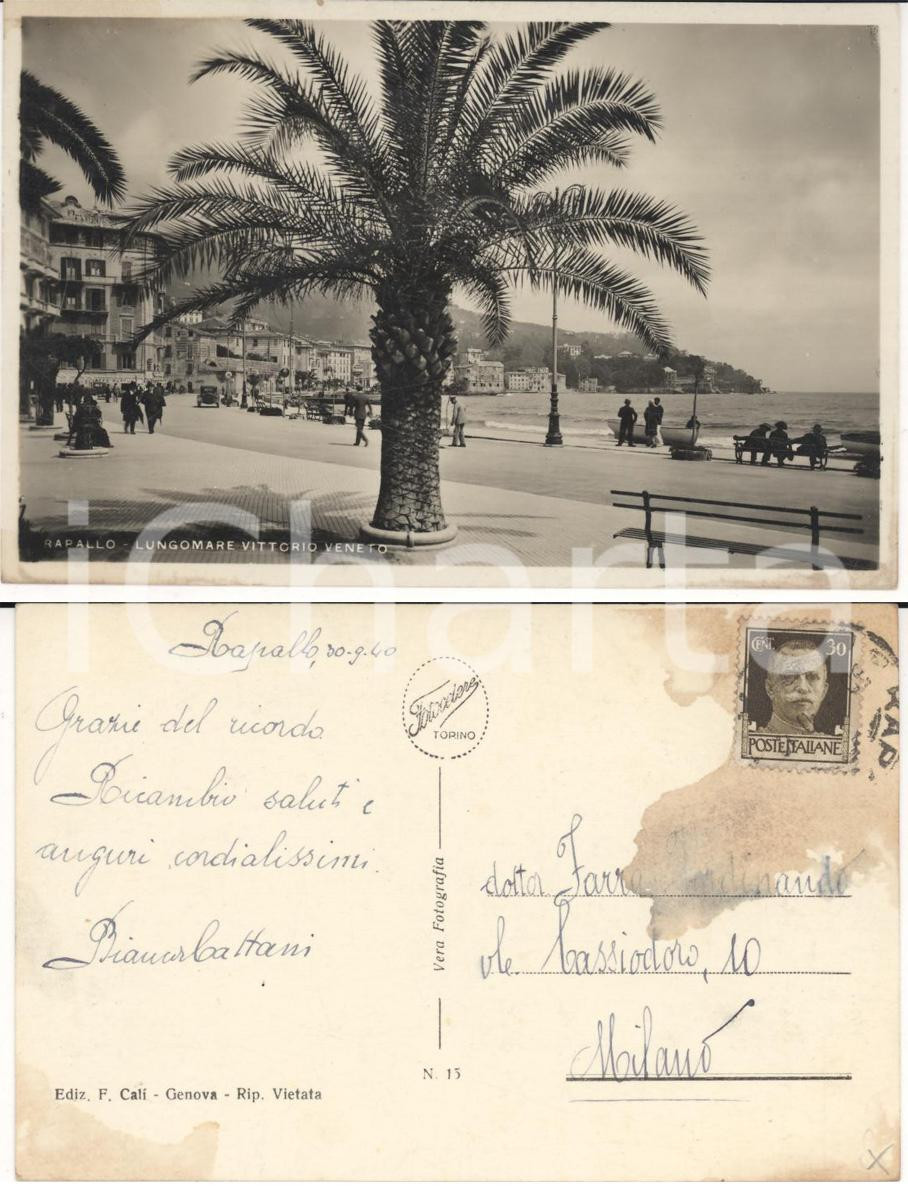 RAPALLO - LUNGOMARE VITTORIO VENETO
iCharta
Rapallo, 30-9-40
Grazie del ricordo
Ricambio saluti e
auguri cordialissimi.
Bianca Cattani
Fotocelere
TORINO
Vera Fotografia
N. 15
Ediz. F. Calí - Genova - Rip. Vietata
CENT. 30
POSTE ITALIANE
RAP
dottor Farra Ferdinando
vle. Cassiodoro, 10
Milano